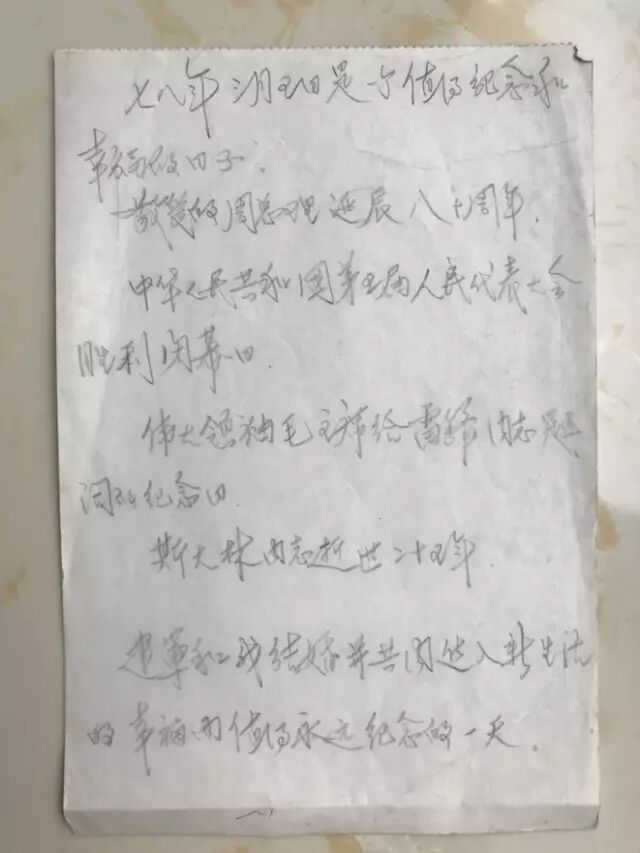 七八年三月五日是个值得纪念和
幸福的日子.
敬爱的周总理诞辰八十周年.
中华人民共和国第五届人民代表大会
胜利闭幕日.
伟大领袖毛主席给雷锋同志题
词的纪念日.
斯大林同志逝世二十五年.
建军和我结婚并共同进入新生活
的幸福而值得永远纪念的一天.